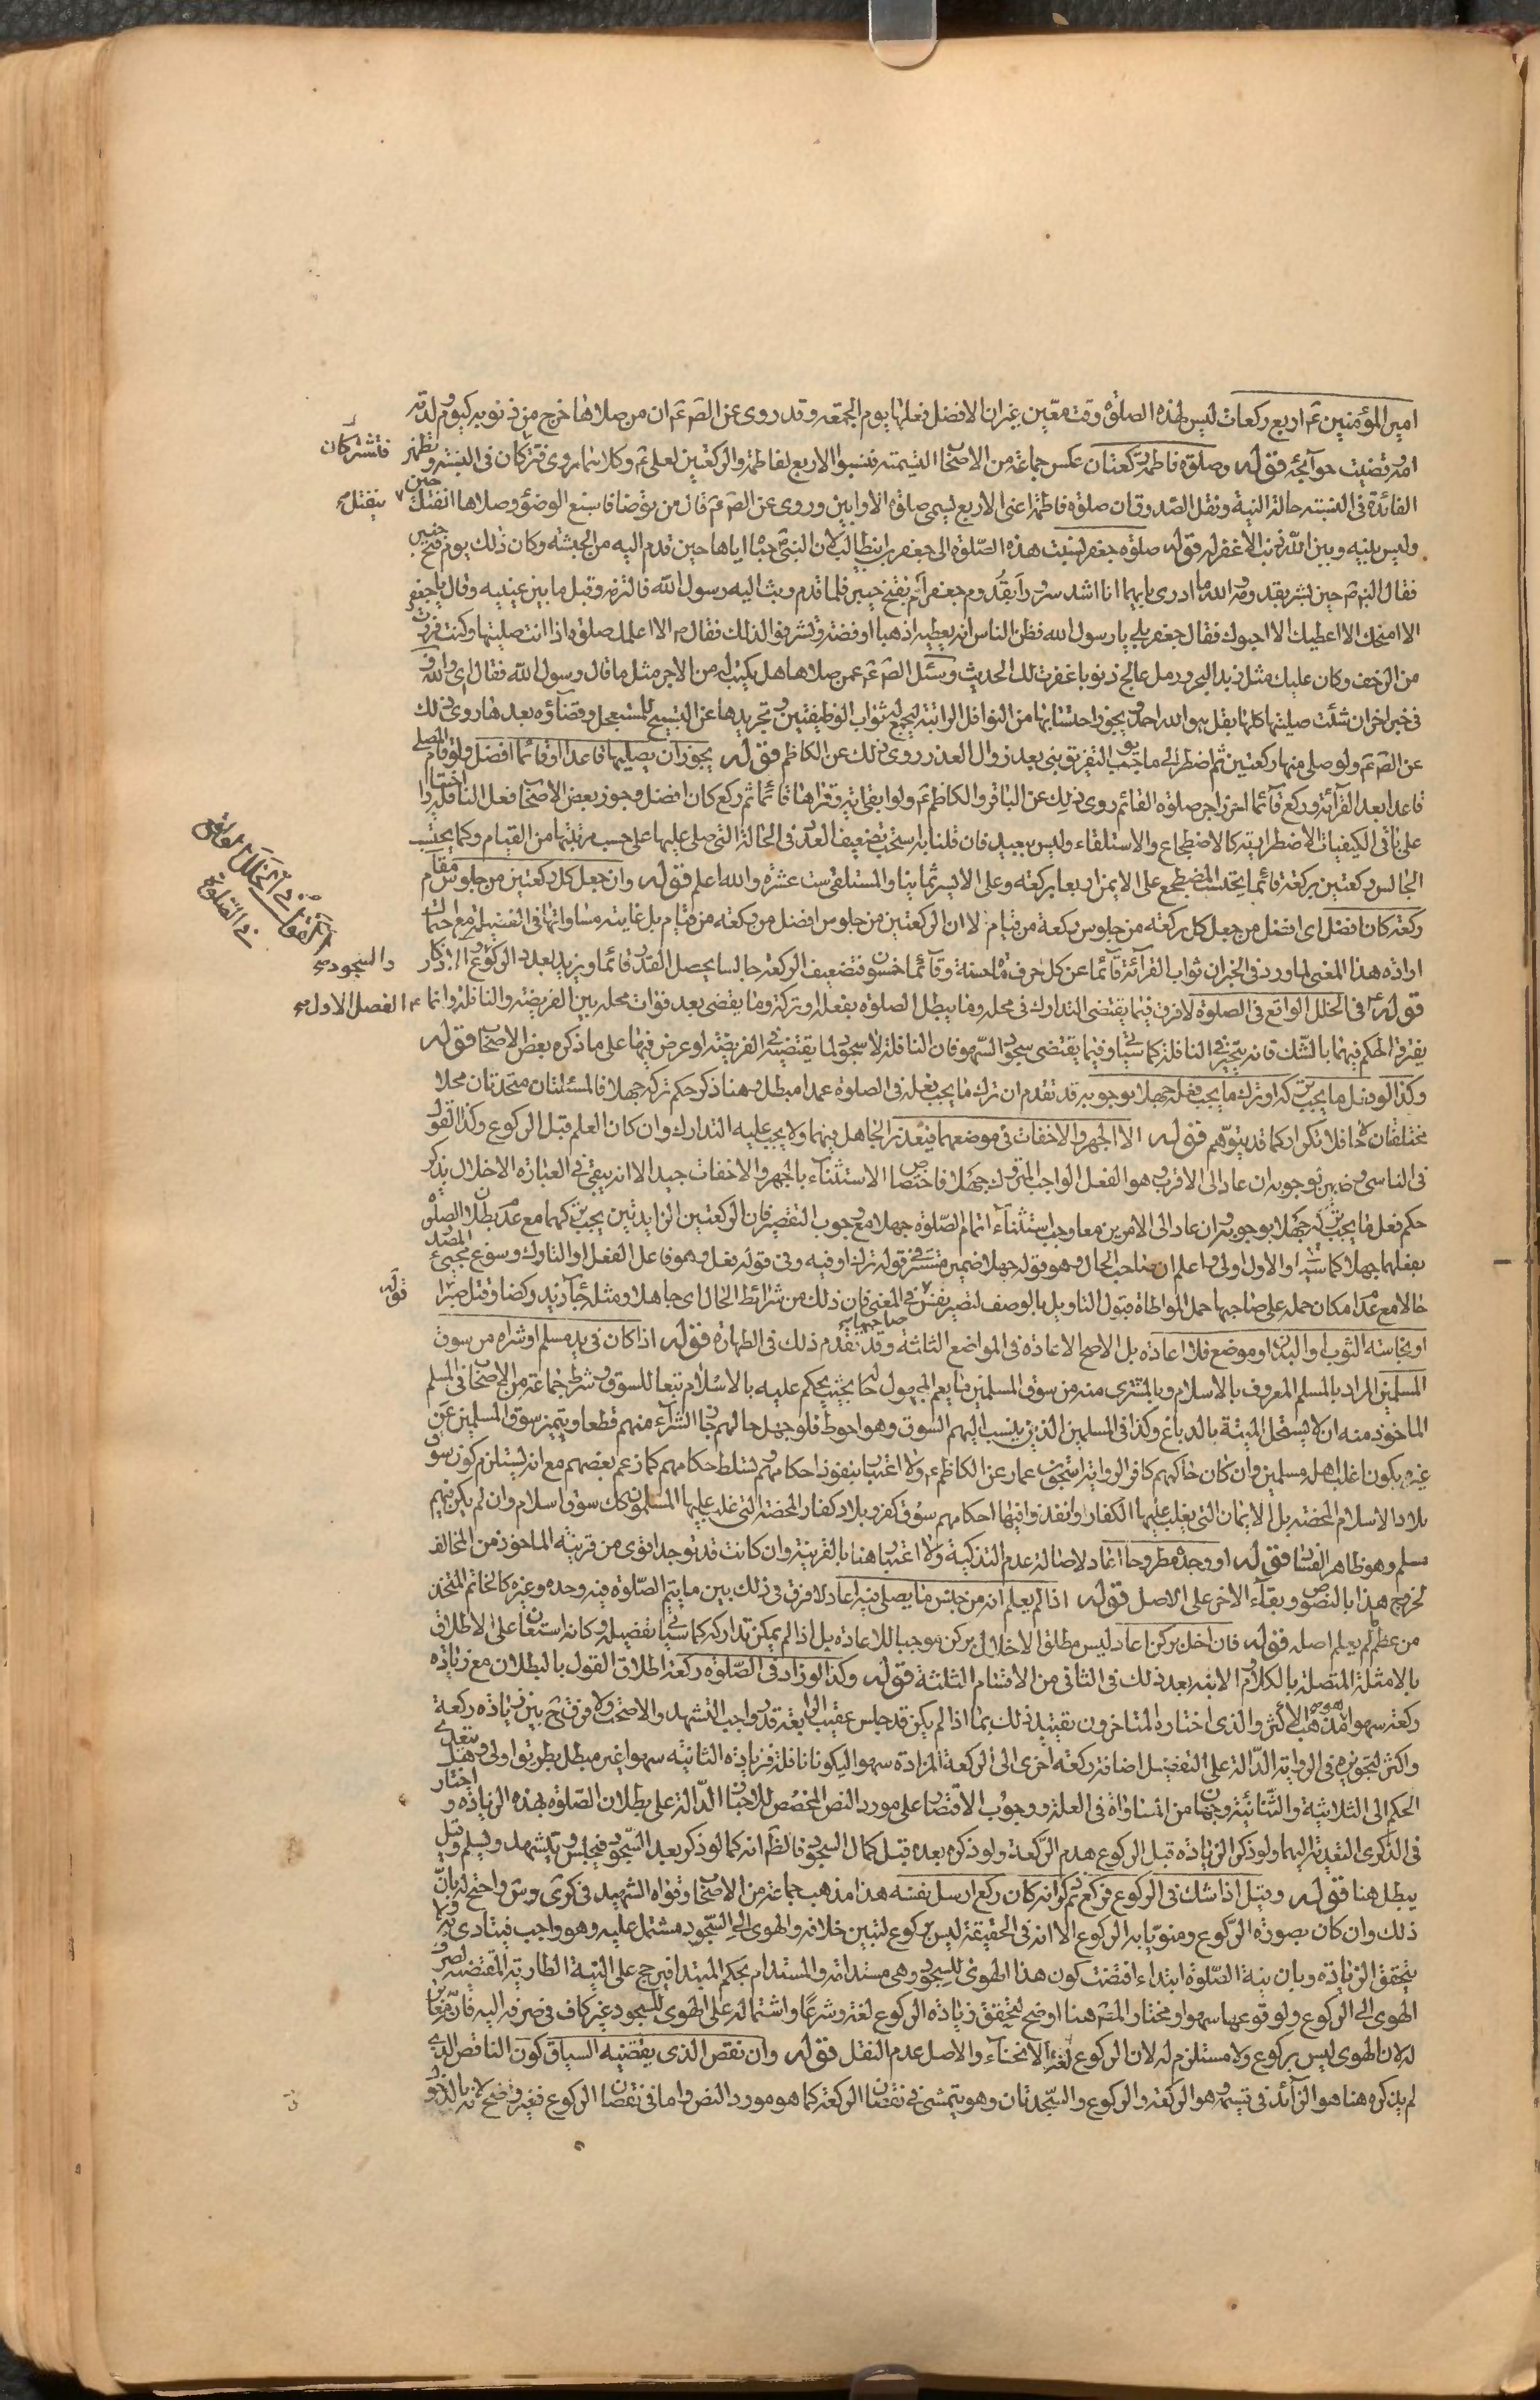 امير المؤمنين ع اربع ركعات ليس لهذه الصلوة وقت معين غير ان الافضل فعلها يوم الجمعه وقد روى عن الصّ ع ان من صلاها خرج من ذنوبه كيوم ولدته
امه وقضيت حوآئجه قوله وصلوة فاطمة ركعتان عكس جماعة من الاصحاب التسمية فنسبوا الاربع لفاطمة والركعتين لعلى ع وكلاهما مروى فتشتركان في النسبه وتظهر
فتشتركان
الفائدة فى النسبة حالة النية ونقل الصدوق ان صلوة فاطمة اعنى الاربع تسمى صلوة الاوابين وروى عن الصّ ع قال من توضا فاسبغ الوضوء وصلاها انفتل حين ينفتل
وليس بينه وبين الله ذنب الا غفر له قوله صلوة جعفر نسبت هذه الصّلوة الى جعفر بن ابيطالب لان النبى ص حباه اياها حين قدم اليه من الحبشه وكان ذلك يوم فتح خيبر
فقال النبى ص حين بشر بقدومه والله ما ادرى بايهما انا اشد سرورا بقدوم جعفر ام بفتح خيبر فلما قدم وثب اليه رسول الله فالتزمه وقبل ما بين عينيه وقال يا جعفر
الا امنحك الا اعطيك الا احبوك فقال جعفر بلى يا رسول الله فظن الناس انه يعطيه ذهبا او فضة وتشرفوا لذلك فقال ص الا اعلمك صلوة اذا انت صليتها وكنت فررت
من الزحف وكان عليك مثل زبد البحر ورمل عالج ذنوبا غفرت لك الحديث وسئل الصّ ع عمن صلاها هل يكتب له من الاجر مثل ما قال رسول الله فقال اى والله و
فى خبر اخر ان شئت صليتها كلها بقل هو الله احد ويجوز احتسابها من النوافل الراتبة ليجمع له ثواب الوظيفتين وتجريدها عن التسبيح للمستعجل وقضآؤه بعدها روى ذلك
عن الصّ ع ولو صلى منها ركعتين ثم اضطر الى ما يوجب التفريق بنى بعد زوال العذر روى ذلك عن الكاظم قوله يجوز ان يصليها قاعدا وقائما افضل ولو قام المصلى
قاعدا بعد القرآئة وركع قآئما احرز اجر صلوة القائم روى ذلك عن الباقر والكاظم ع ولو ابقى اية وقراها قآئما ثم ركع كان افضل وجوز بعض الاصحاب فعل النافلة اختيارا
على باقى الكيفيات الاضطرارية كالاضطجاع والاستلقاء وليس ببعيد فان قلنا به استحب تضعيف العدد فى الحالة التى صلى عليها على حسب مرتبتها من القيام وكما يحتسب
الجالس ركعتين بركعة قائما يحتسب المضطجع على الايمن اربعا بركعة وعلى الايسر ثمانيا والمستلقى ست عشره والله اعلم قوله وان جعل كل ركعتين من جلوس مقام
ركعة كان افضل اى افضل من جعل كل ركعة من جلوس بركعة من قيام لا ان الركعتين من جلوس افضل من ركعة من قيام بل غايته مساواتها فى الفضيلة مع احتمال
ارادة هذا المعنى لما ورد فى الخبر ان ثواب القرآئة قآئما عن كل حرف مأة حسنة وقآئما خمسون فتضعيف الركعة جالسا يحصل القدر قآئما ويزيد بعدد الركوع الاذكار
والسجود
قوله فى الخلل الواقع فى الصلوة لا فرق فيما يقتضى التدارك فى محله وما يبطل الصلوة بفعله او تركه وما يقضى بعد فوات محله بين الفريضه والنافلة وانما
الفصل الاول
يفترق الحكم فيهما بالشّك فانه يتخير فى النافلة كما سياتى وفيما يقتضى سجود السّهو فان النافلة لا سجود لما يقتضيه فى الفريضه لو عرض فيها على ما ذكره بعض الاصحاب قوله
وكذا لو فعل ما يجب تركه او ترك ما يجب فعله جهلا بوجوبه قد تقدم ان ترك ما يجب فعله فى الصلوة عمدا مبطل وهنا ذكر حكم تركه جهلا فالمسئلتان متحدتان محلا
مختلفتان حكما فلا تكرار كما قد يتوهم قوله الا الجهر والاخفات فى موضعهما فيعذر الجاهل فيهما ولا يجب عليه التدارك وان كان العلم قبل الركوع وكذا القول
فى الناسى وضمير بوجوبه ان عاد الى الاقرب وهو الفعل الواجب المتروك جهلا فاختصاص الاستثنآء بالجهر والاخفات جيد الا انه يبقى فى العبارة الاخلال بذكر
حكم فعل ما يجب تركه جهلا بوجوبه وان عاد الى الامرين معا وجب استثنآء اتمام الصّلوة جهلا مع وجوب التقصير فان الركعتين الزايدتين يجب تركهما مع عدم بطلان الصلوة
بفعلهما جهلا كما سياتى والاول اولى واعلم ان صاحب الحال وهو قوله جهلا ضمير مستتر فى قوله ترك او فيه وفى قوله فعل وهو فاعل الفعل او التارك وسوغ مجيئ المصدر
حالا مع عدم امكان حمله على صاحبها حمل المواطاة قبول التاويل بالوصف ليصير نفس صاحبها فى المعنى فان ذلك من شرائط الحال اى جاهلا ومثله جآء زيد ركضا وقتل صبرا
قوله
او بنجاسة الثوب او البدن او موضع فلا اعاده بل الاصح الاعادة فى المواضع الثلثة وقد تقدم ذلك فى الطهارة قوله اذا كان فى يد مسلم او شراه من سوق
المسلمين المراد بالمسلم المعروف بالاسلام وبالمشترى منه من سوق المسلمين ما يعم المجهول حاله بحيث يحكم عليه بالاسلام تبعا للسوق وشرط جماعة من الاصحاب فى المسلم
الماخوذ منه ان لا يستحل الميتة بالدباغ وكذا فى المسلمين الذين ينسب اليهم السوق وهو احوط فلو جهل حالهم جاز الشرآء منهم قطعا ويتميز سوق المسلمين عن
غيره بكون اغلب اهله مسلمين وان كان حاكمهم كافرا لرواية اسحق بن عمار عن الكاظم ع ولا اعتبار بنفوذ احكامهم وتسلط حكامهم كما زعم بعضهم مع انه يستلزم كون سوق
بلاد الاسلام المحضة بل الايمان التى يغلب عليها الكفار وانفذوا فيها احكامهم سوق كفر وبلاد كفار المحضة التى غلب عليها المسلمون كك سوق اسلام وان لم يكن فيهم
مسلم وهو ظاهر الفساد قوله او وجده مطروحا اعاد لاصالة عدم التذكية ولا اعتبار هنا بالقرينة وان كانت قد توجد اقوى من قرينة الماخوذ من المخالف
لخروج هذا بالنص وبقآء الاخر على الاصل قوله اذا لم يعلم انه من جنس ما يصلى فيه اعاد لا فرق فى ذلك بين ما يتم الصّلوة فيه وحده وغيره كالخاتم المتخذ
من عظم لم يعلم اصله قوله فان اخل بركن اعاد ليس مطلق الاخلال بركن موجبا للاعادة بل اذا لم يمكن تداركه كما سياتى تفصيله وكانه استغنا على الاطلاق
بالامثلة المتصلة بالكلام والاتية بعد ذلك فى الثانى من الاقسام الثلثة قوله وكذا لو زاد فى الصّلوة ركعة اطلاق القول بالبطلان مع زيادة
ركعة سهوا هو مذهب الاكثر والذى اختاره المتاخرون تقييد ذلك بما اذا لم يكن قد جلس عقيب الرابعة قدر واجب التشهد والاصح ولا فرق ح بين زيادة ركعة
واكثر لتجويزه فى الرواية الدّالة على التفصيل اضافة ركعة اخرى الى الركعة المزادة سهوا ليكونا نافلة فزيادة الثانية سهوا غير مبطل بطريق اولى وهل يتعدى
الحكم الى الثلاثية والثنائية وجهان من المساواة فى العلة ووجوب الاقتصار على مورد النص المخصص للاخبار الدّالة على بطلان الصّلوة بهذه الزيادة و اختار
فى الذكرى التعدية اليهما ولو ذكر الزيادة قبل الركوع هدم الرّكعة ولو ذكره بعده قبل كمال السجود فالظّ انه كما لو ذكر بعد السّجود فيجلس ويتشهد ويسلم وقيل
يبطل هنا قوله وقيل اذا شك فى الركوع فركع ثم ذكر انه كان ركع ارسل نفسه هذا مذهب جماعة من الاصحاب وقواه الشهيد فى كرى وس واحتج له بانّ
ذلك وان كان بصورة الرّكوع ومنويّا به الركوع الا انه فى الحقيقة ليس بركوع لتبين خلافه والهوى الى السّجود مشتمل عليه وهو واجب فيتادى به ولا
يتحقق الزيادة وبان نية الصّلوة ابتداء اقتضت كون هذا الهوى للسجود وهى مستدامة والمستدام بحكم المبتدا فيرجح على النية الطارية المقتضيه لصرف
الهوى الى الركوع ولوقوعها سهوا ومختار المصّ هنا اوضح لتحقق زيادة الركوع لغة وشرعا واشتماله على الهوى للسجود غير كاف فى صرفه اليه فانه مغاير
له لان الهوى ليس بركوع ولا مستلزم له لان الركوع لغة الانحناء والاصل عدم النقل قوله وان نقص الذى يقتضيه السياق كون الناقص الذى
لم يذكره هنا هو الزآئد فى قسيمه وهو الركعة والركوع والسّجدتان وهو يتمشى فى نقصان الركعة كما هو مورد النص واما فى نقصان الركوع فغير واضح لانه بالذكر